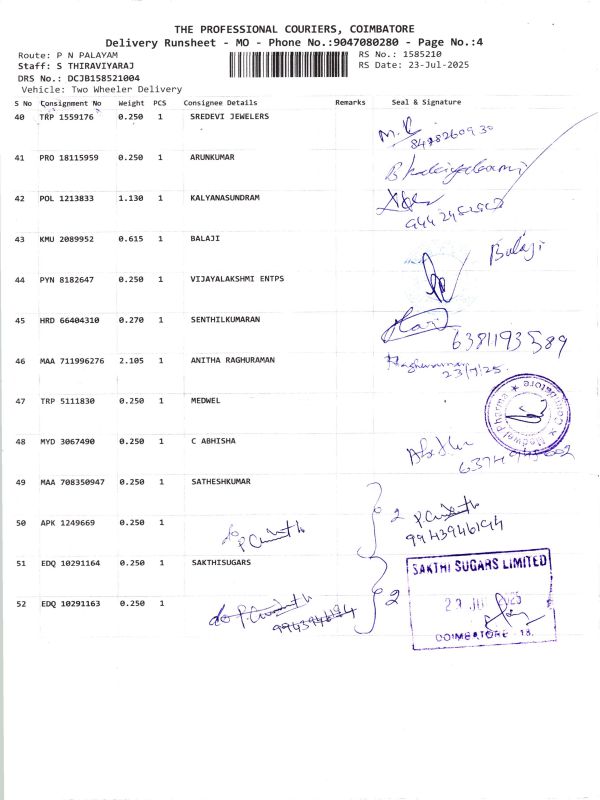 THE PROFESSIONAL COURIERS, COIMBATORE
Delivery Runsheet - MO - Phone No.:9047080280 - Page No.:4
Route: P N PALAYAM
RS No.: 1585210
Staff: S THIRAVIYARAJ
RS Date: 23-Jul-2025
DRS No.: DCJB158521004
Vehicle: Two Wheeler Delivery
S No Consignment No Weight PCS Consignee Details Remarks Seal & Signature
40 TRP 1559176 0.250 1 SREDEVI JEWELERS
M.R
41 PRO 18115959 0.250 1 ARUNKUMAR
42 POL 1213833 1.130 1 KALYANASUNDRAM
43 KMU 2089952 0.615 1 BALAJI
Balaji
44 PYN 8182647 0.250 1 VIJAYALAKSHMI ENTPS
45 HRD 66404310 0.270 1 SENTHILKUMARAN
Hari
6381193589
46 MAA 711996276 2.105 1 ANITHA RAGHURAMAN
Raghuraman
23/7/25
47 TRP 5111830 0.250 1 MEDWEL
Medwel Pharma ★ Coimbatore ★
48 MYD 3067490 0.250 1 C ABHISHA
49 MAA 708350947 0.250 1 SATHESHKUMAR
2
50 APK 1249669 0.250 1
do
9943946194
51 EDQ 10291164 0.250 1 SAKTHISUGARS
SAKTHI SUGARS LIMITED
52 EDQ 10291163 0.250 1
do
9943946194
2
COIMBATORE - 18.